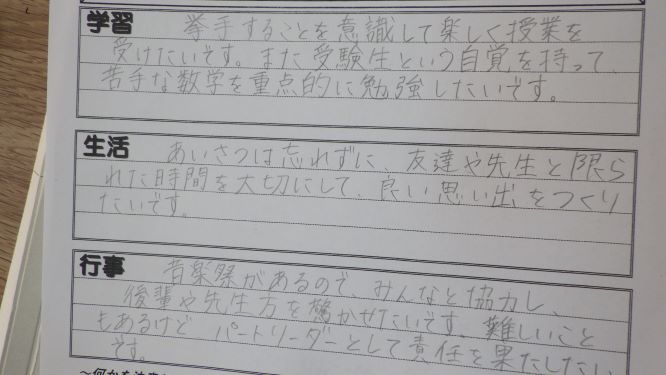 学習
挙手することを意識して楽しく授業を
受けたいです。また受験生という自覚を持って、
苦手な数学を重点的に勉強したいです。
生活
あいさつは忘れずに、友達や先生と限ら
れた時間を大切にして、良い思い出をつくり
たいです。
行事
音楽祭があるので、みんなと協力し、
後輩や先生方を驚かせたいです。難しいこと
もあるけど パートリーダーとして責任を果たしたい
です。